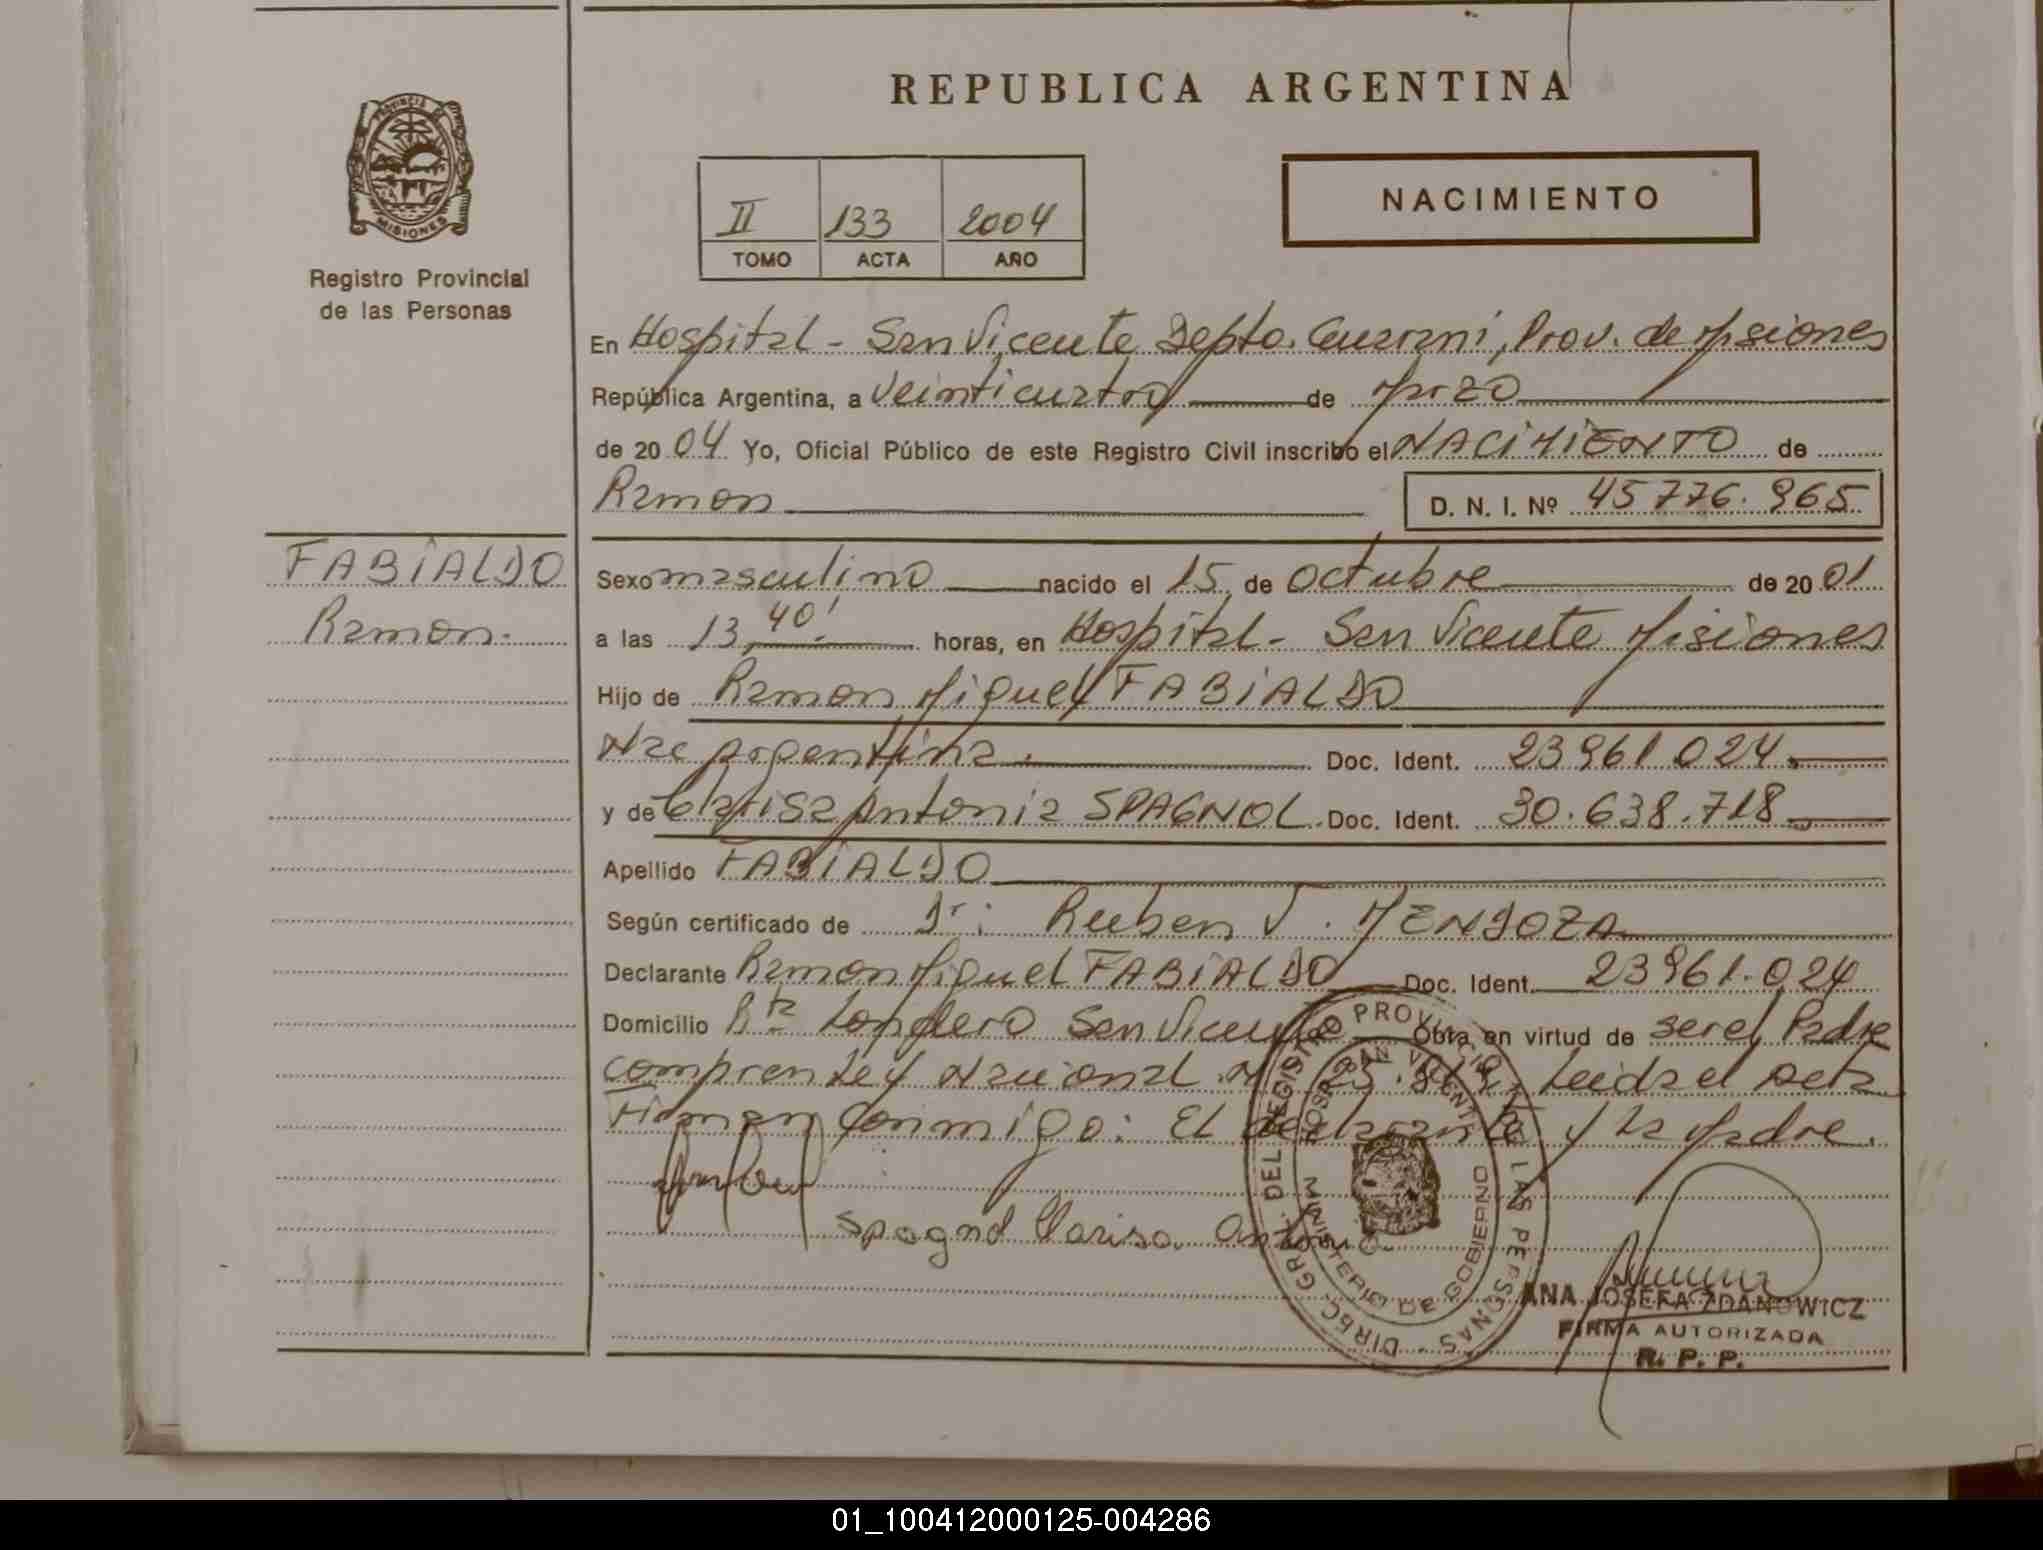 REPUBLICA ARGENTINA
PROVINCIA DE
MISIONES
Registro Provincial
de las Personas
II 133 2004
TOMO ACTA AÑO
NACIMIENTO
En Hospital - San Vicente Depto. Guarani, Prov. de Misiones
República Argentina, a veinticuatro de Marzo
de 20 04 Yo, Oficial Público de este Registro Civil inscribo el NACIMIENTO de
Ramon D. N. I. Nº 45776.965
FABIALDO
Ramon.
Sexo masculino nacido el 15 de octubre de 20 01
a las 13,40' horas, en Hospital - San Vicente Misiones
Hijo de Ramon Miguel FABIALDO
Nac Argentina. Doc. Ident. 23961.024.
y de Clarisa Antonia SPAGNOL. Doc. Ident. 30.638.718
Apellido FABIALDO
Según certificado de Dr: Ruben V. MENDOZA
Declarante Ramon Miguel FABIALDO Doc. Ident. 23961.024
Domicilio Londero San Vicente Obra en virtud de ser el Padre
Nacional Leida el Acta
Firman Conmigo: El declarante y La Madre.
Spagnol Clarisa Antonia
DIREC. GRAL. DEL REGISTRO PROVINCIAL DE LAS PERSONAS
HOSP. SAN VICENTE
MINISTERIO DE GOBIERNO
ANA JOSEFA ZDANOWICZ
FIRMA AUTORIZADA
R. P. P.
01_100412000125-004286